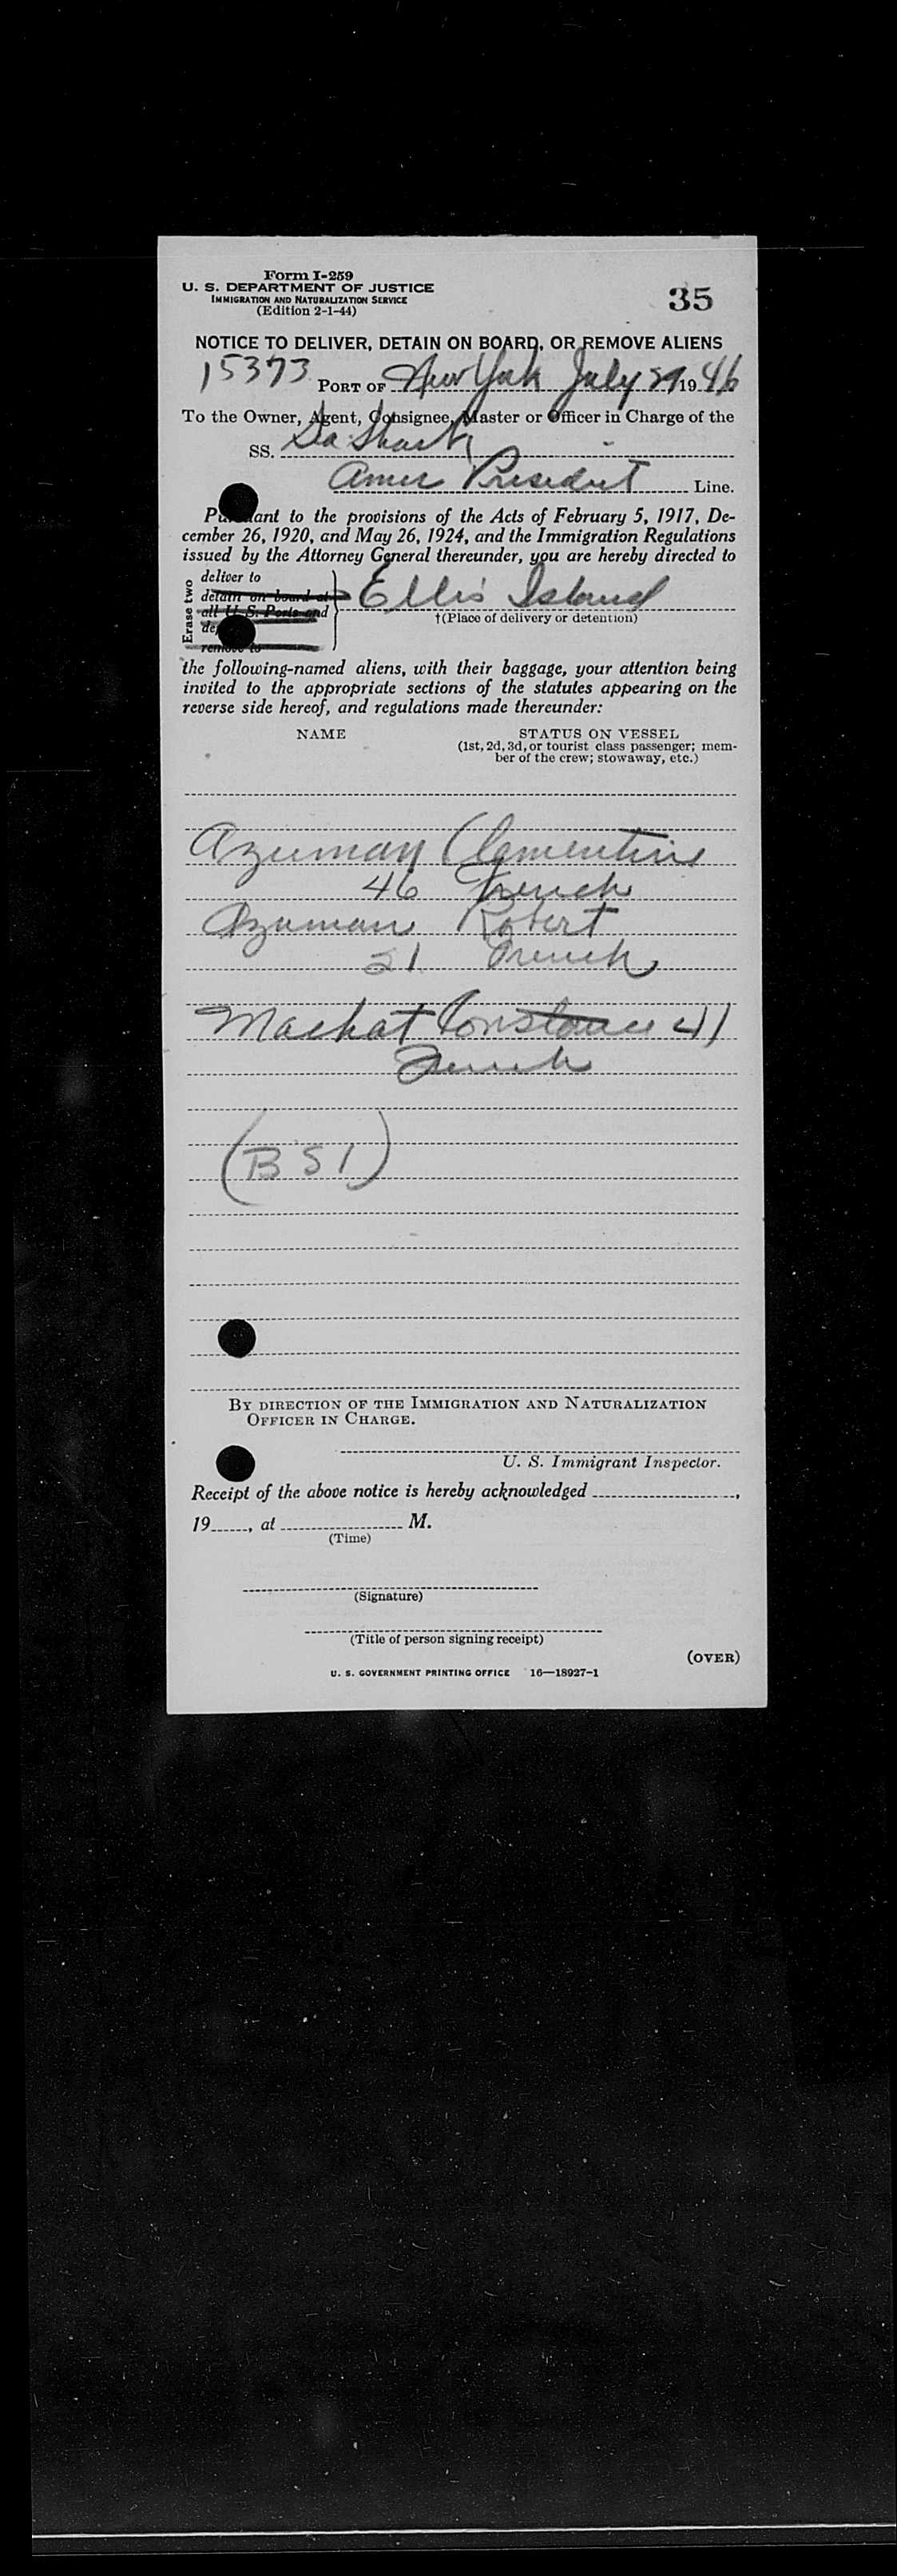 Form I-259
U. S. DEPARTMENT OF JUSTICE
IMMIGRATION AND NATURALIZATION SERVICE
(Edition 2-1-44)
35
NOTICE TO DELIVER, DETAIN ON BOARD, OR REMOVE ALIENS
15373 PORT OF New York July 29 1946
To the Owner, Agent, Consignee, Master or Officer in Charge of the
SS. Sea Shark
Amer President Line.
Pursuant to the provisions of the Acts of February 5, 1917, De-
cember 26, 1920, and May 26, 1924, and the Immigration Regulations
issued by the Attorney General thereunder, you are hereby directed to
Erase two
deliver to
detain on board at
all U. S. Ports and
remove to
Ellis Island
†(Place of delivery or detention)
the following-named aliens, with their baggage, your attention being
invited to the appropriate sections of the statutes appearing on the
reverse side hereof, and regulations made thereunder:
NAME STATUS ON VESSEL
(1st, 2d, 3d, or tourist class passenger; mem-
ber of the crew; stowaway, etc.)
Azuman Clementine
46 French
Azuman Robert
21 French
Machat Constance 41
French
(BSI)
BY DIRECTION OF THE IMMIGRATION AND NATURALIZATION
OFFICER IN CHARGE.
U. S. Immigrant Inspector.
Receipt of the above notice is hereby acknowledged ,
19 , at M.
(Time)
(Signature)
(Title of person signing receipt)
(OVER)
U. S. GOVERNMENT PRINTING OFFICE 16—18927-1